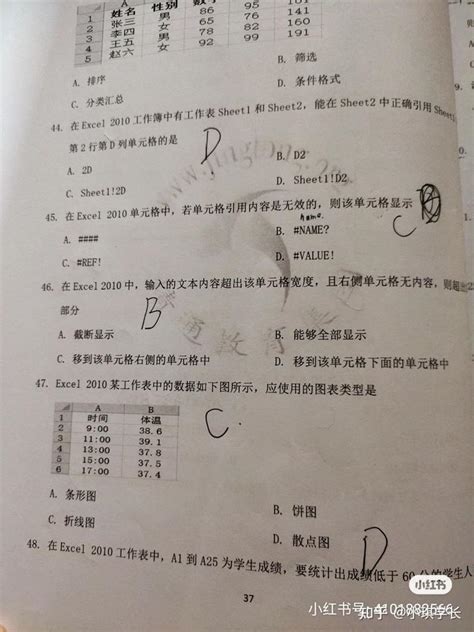 A
姓名 性别
1 张三 男 86 95 181
2 李四 男 65 76 141
3 王五 女 78 82 160
4 赵六 女 92 99 191
5
A. 排序 B. 筛选
C. 分类汇总 D. 条件格式
44. 在 Excel 2010 工作簿中有工作表 Sheet1 和 Sheet2,能在 Sheet2 中正确引用 Sheet1
第 2 行第 D 列单元格的是 D
A. 2D B. D2
C. Sheet1!2D D. Sheet1!D2
www.jingtong
45. 在 Excel 2010 单元格中,若单元格引用内容是无效的,则该单元格显示
name. C
A. #### B. #NAME?
C. #REF! D. #VALUE!
46. 在 Excel 2010 中,输入的文本内容超出该单元格宽度,且右侧单元格无内容,则超出
部分 B
A. 截断显示 B. 能够全部显示
通教育
C. 移到该单元格右侧的单元格中 D. 移到该单元格下面的单元格中
47. Excel 2010 某工作表中的数据如下图所示,应使用的图表类型是
C.
A B
1 时间 体温
2 9:00 38.6
3 11:00 39.1
4 13:00 37.8
5 15:00 37.5
6 17:00 37.4
A. 条形图 B. 饼图
C. 折线图 D. 散点图
D
48. 在 Excel 2010 工作表中,A1 到 A25 为学生成绩,要统计出成绩低于 60 分的学生人
37
小红书
小红书号: 4101882566
知乎 @小琪学长